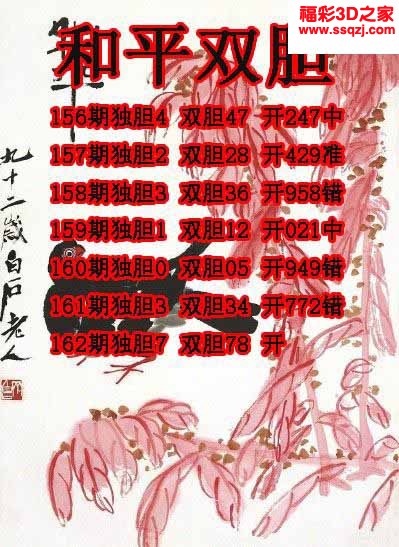 福彩3D之家
www.ssqzj.com
和平双胆
156期独胆4 双胆47 开247中
157期独胆2 双胆28 开429准
158期独胆3 双胆36 开958错
159期独胆1 双胆12 开021中
160期独胆0 双胆05 开949错
161期独胆3 双胆34 开772错
162期独胆7 双胆78 开
九十二岁白石老人